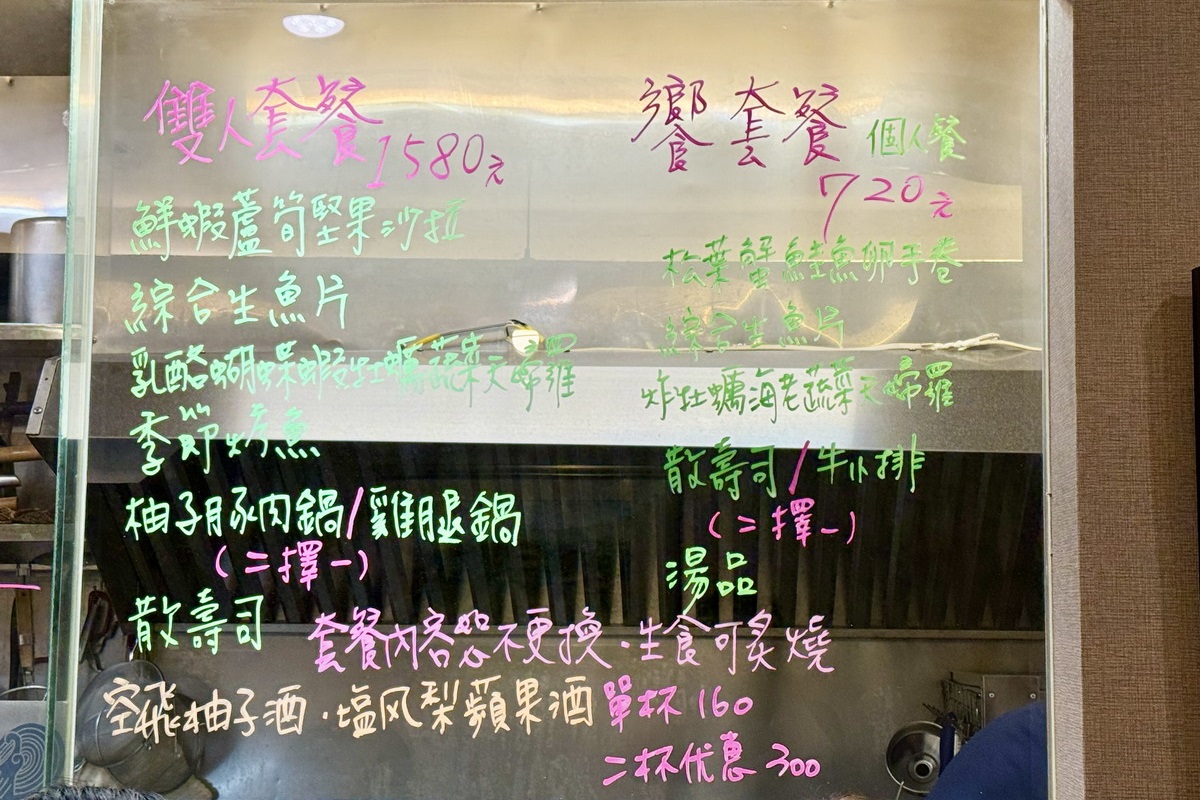 雙人套餐 1580元
鮮蝦蘆筍堅果沙拉
綜合生魚片
乳酪蝴蝶蝦牡蠣蔬菜天婦羅
季節烤魚
柚子豚肉鍋/雞腿鍋
(二擇一)
散壽司
饗套餐 個人餐
720元
松葉蟹鮭魚卵手卷
綜合生魚片
炸牡蠣海老蔬菜天婦羅
散壽司/牛小排
(二擇一)
湯品
套餐內容恕不更換·生食可炙燒
空飛柚子酒·塩风梨蘋果酒 單杯160
二杯优惠300